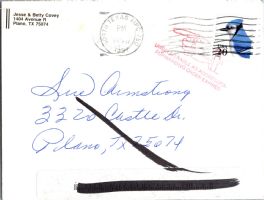 Jesse & Betty Covey
1404 Avenue R
Plano, TX 75074
NORTH TEXAS
PM
20
Sue Armstrong
3320 Castle Dr.
Plano, TX 75074